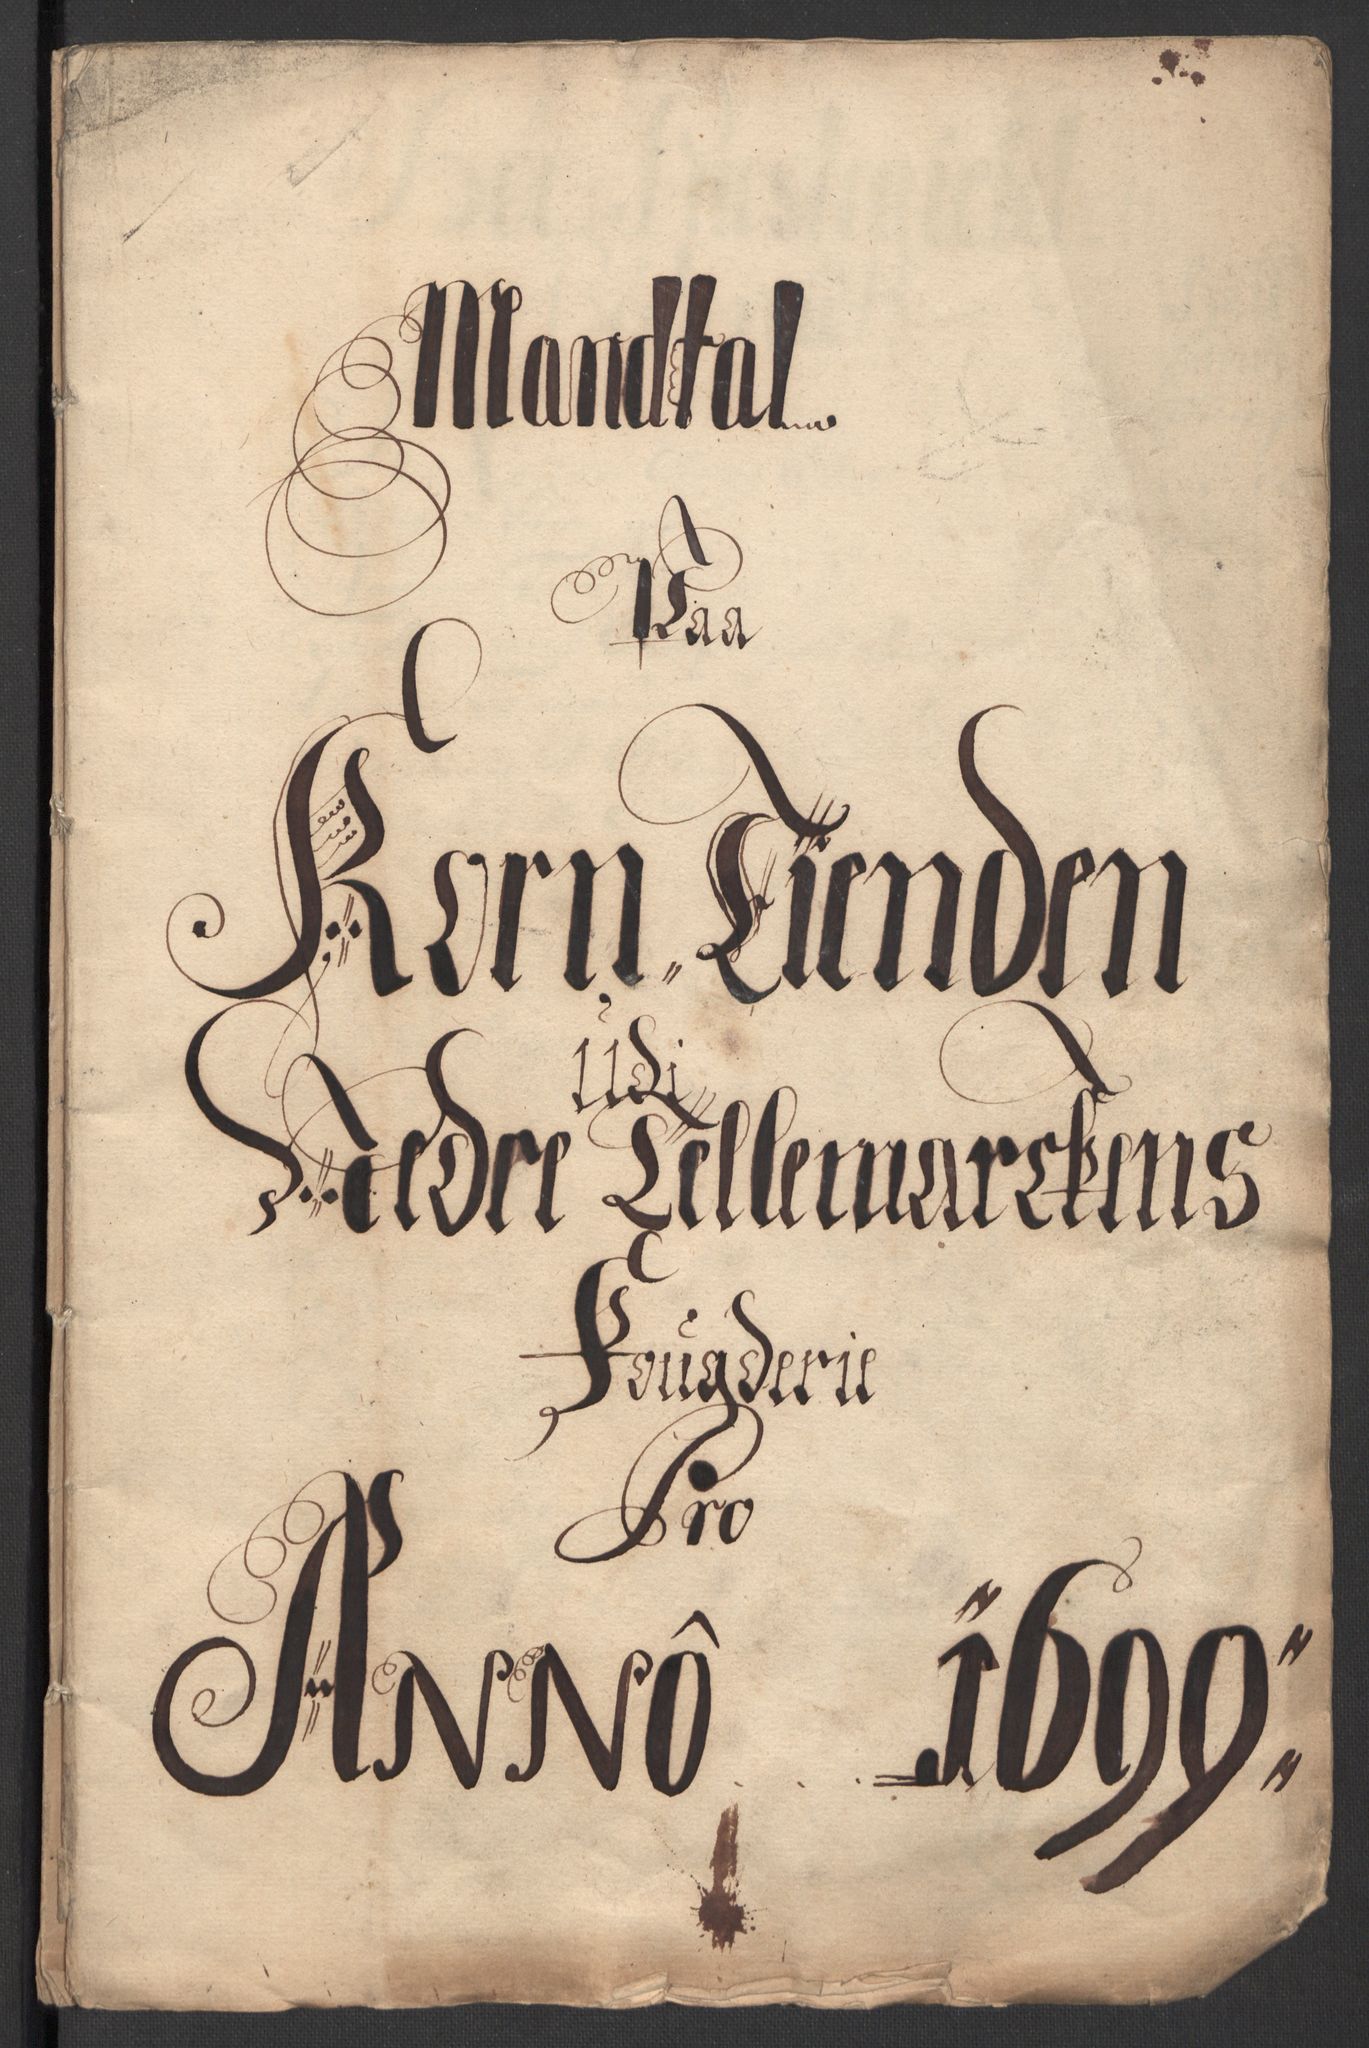 Mandtal
Paa
Korn Tienden
udi
Nedre Tellemarckens
Fougderie
Pro
Annô 1699